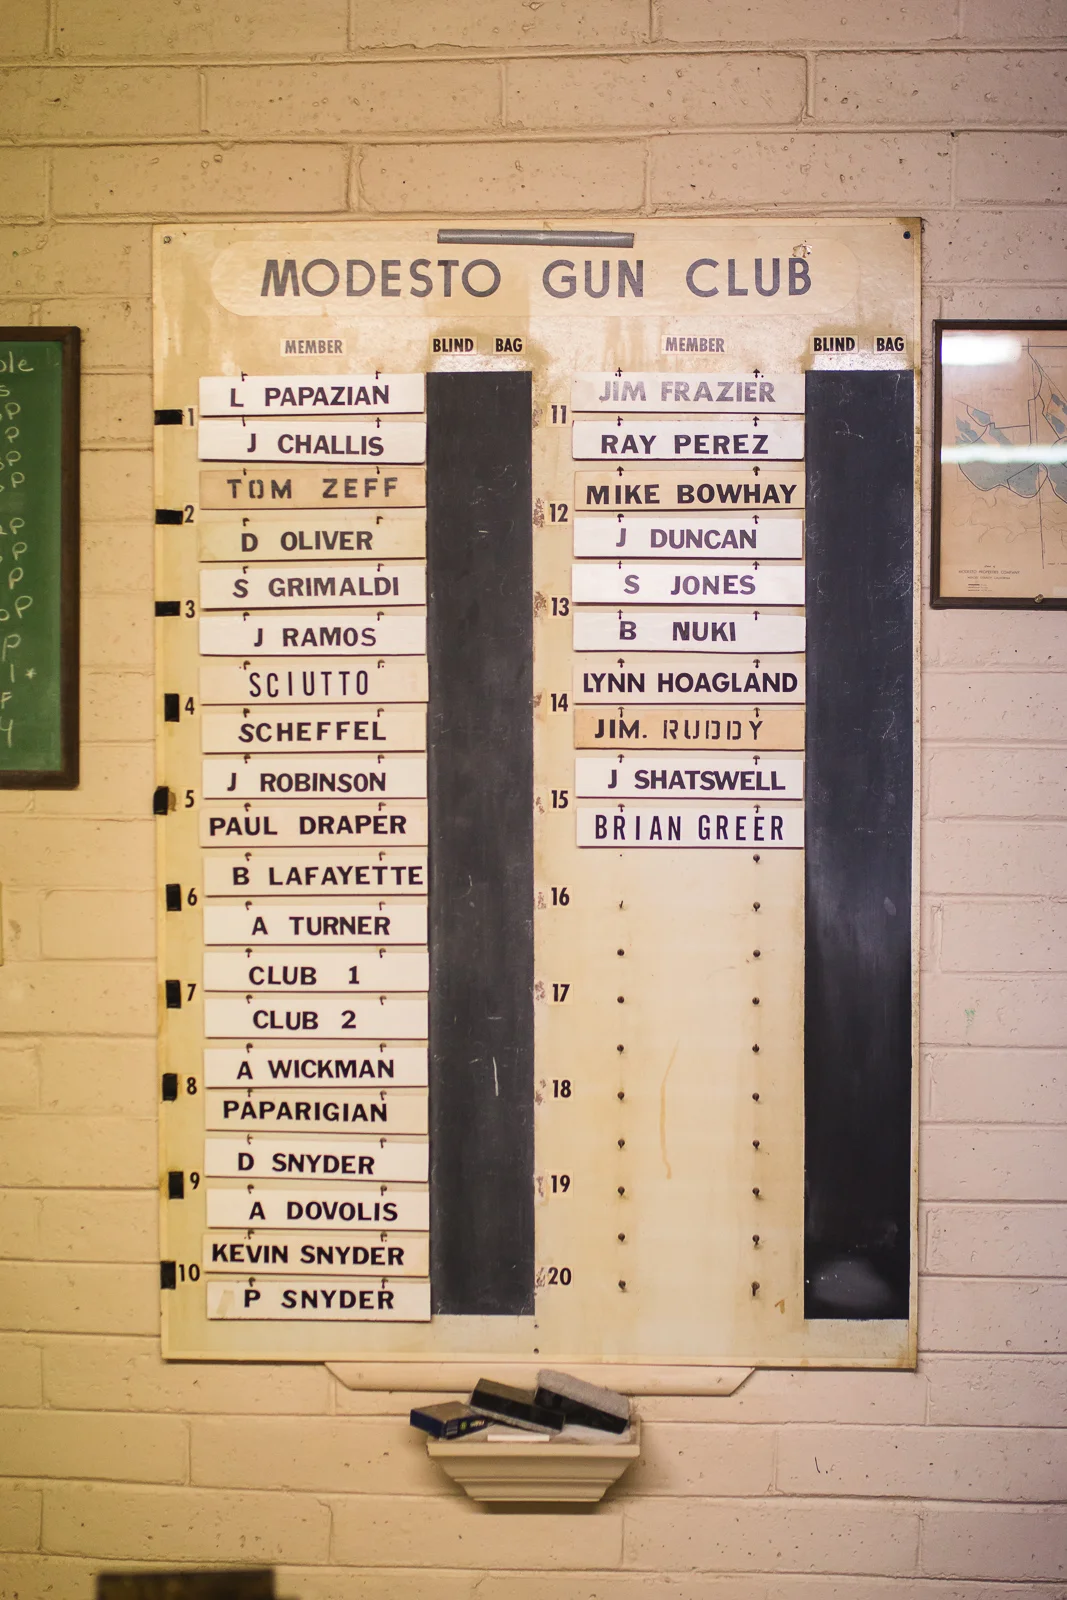 MODESTO GUN CLUB
MEMBER BLIND BAG
L PAPAZIAN
1
J CHALLIS
TOM ZEFF
2
D OLIVER
S GRIMALDI
3
J RAMOS
SCIUTTO
4
SCHEFFEL
J ROBINSON
5
PAUL DRAPER
B LAFAYETTE
6
A TURNER
CLUB 1
7
CLUB 2
A WICKMAN
8
PAPARIGIAN
D SNYDER
9
A DOVOLIS
KEVIN SNYDER
10
P SNYDER
MEMBER BLIND BAG
JIM FRAZIER
11
RAY PEREZ
MIKE BOWHAY
12
J DUNCAN
S JONES
13
B NUKI
LYNN HOAGLAND
14
JIM. RUDDY
J SHATSWELL
15
BRIAN GREER
16
17
18
19
20